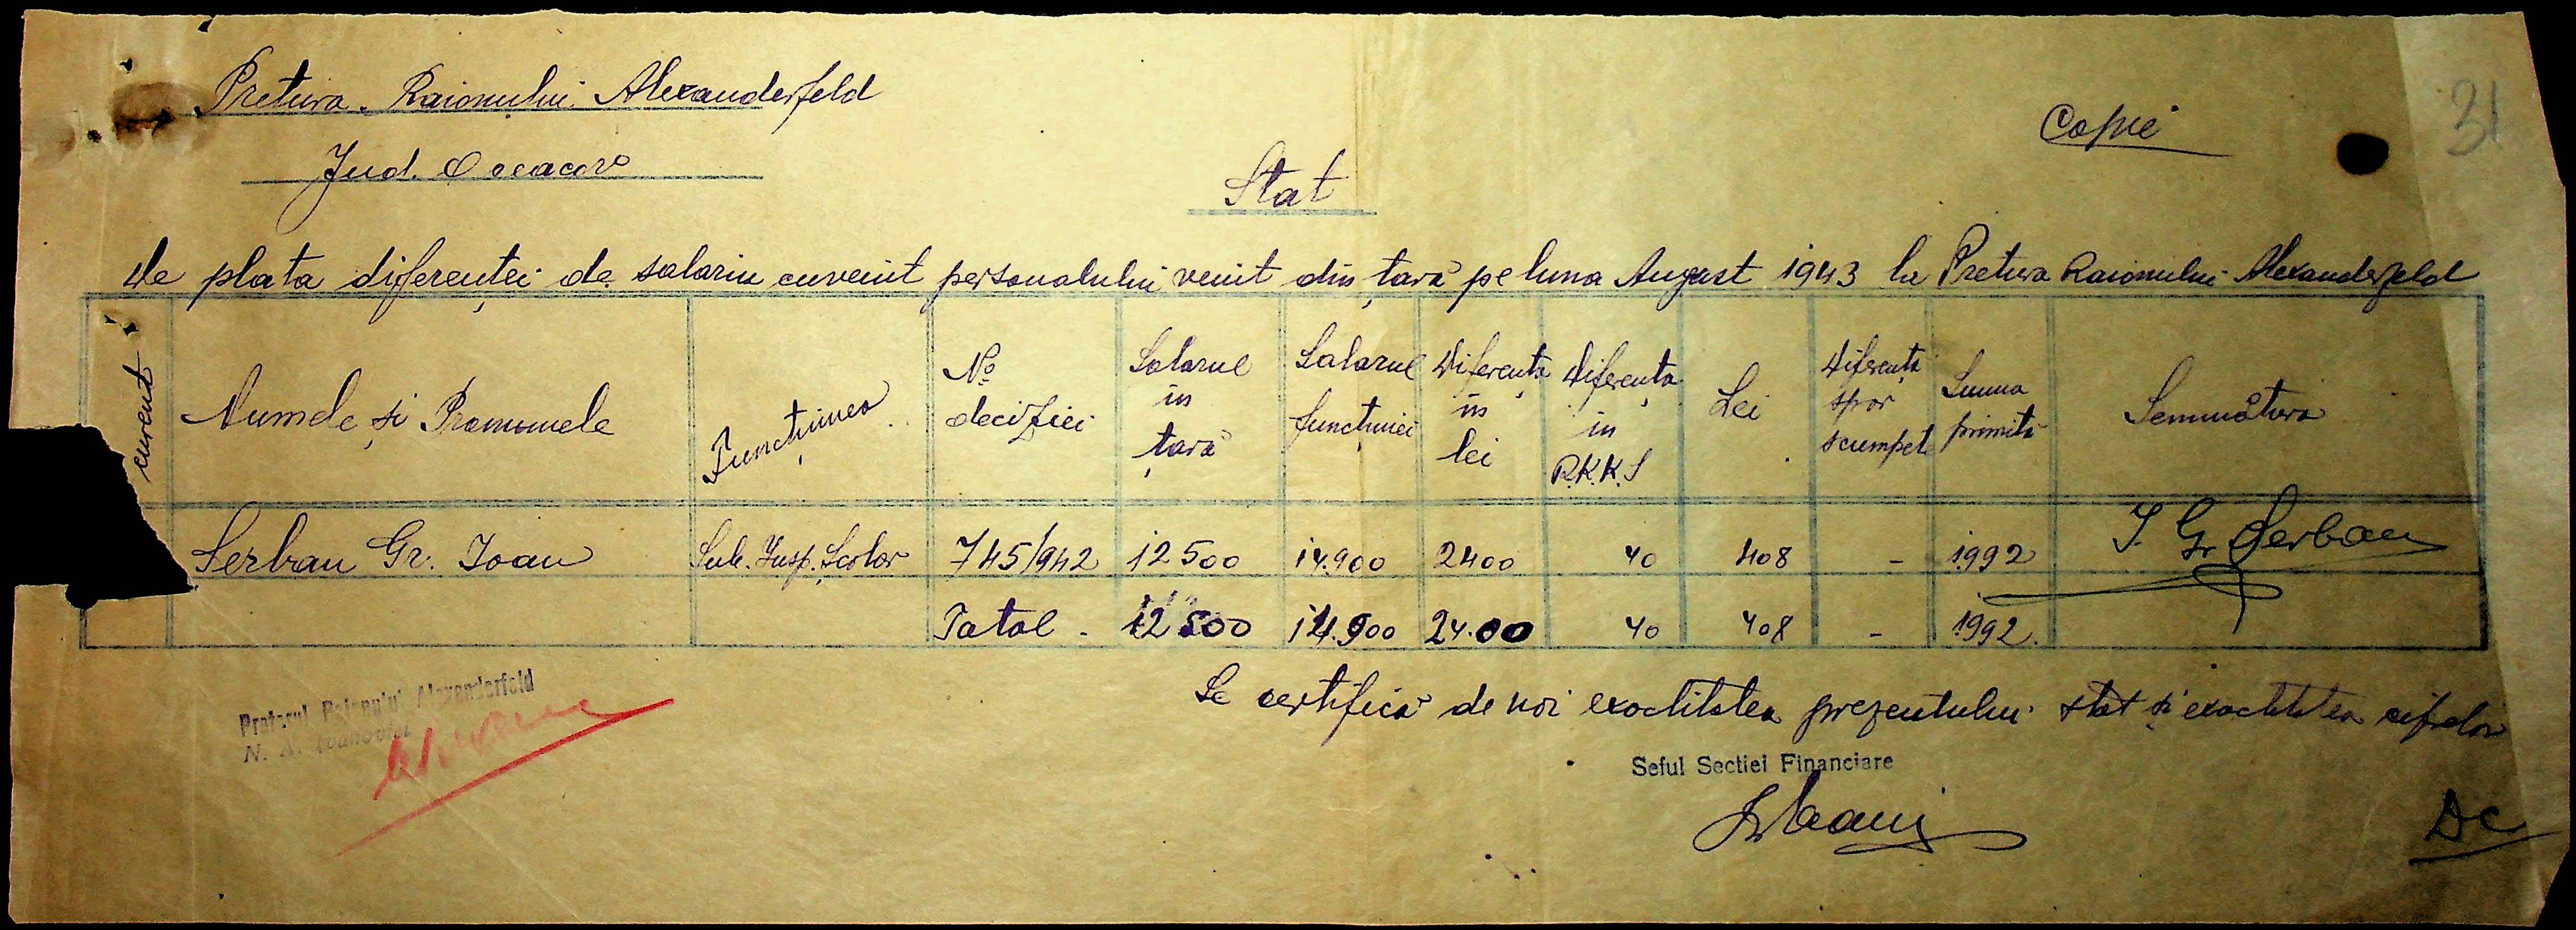 Pretura Raionului Alexanderfeld
Copie
31
Jud. Oceacov
Stat
de plata diferenței de salariu cuvenit personalului venit din țară pe luna August 1943 la Pretura Raionului Alexanderfeld
curent Numele și Pronumele Funcțiunea No deciziei Salarul in țară Salarul funcțiunei Diferența in lei Diferența in R.K.K.S Lei Diferența spor scumpete Suma primită Semnătura
Serban Gr. Ioan Sub. Insp. Școlar 745/942 12500 14.900 2400 40 408 - 1992 I. Gr Serban
Total - 12500 14.900 24.00 40 408 - 1992.
Se certifică de noi exactitatea prezentului stat și exactitatea cifrelor
Pretorul Raionului Alexanderfeld
N. A. Ivanovici
Seful Sectiei Financiare